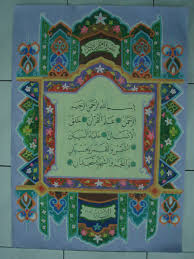 بسم الله الرحمن الرحيم
الرحمن علم القرآن خلق
الإنسان علمه البيان
الشمس والقمر بحسبان
والنجم والشجر يسجدان